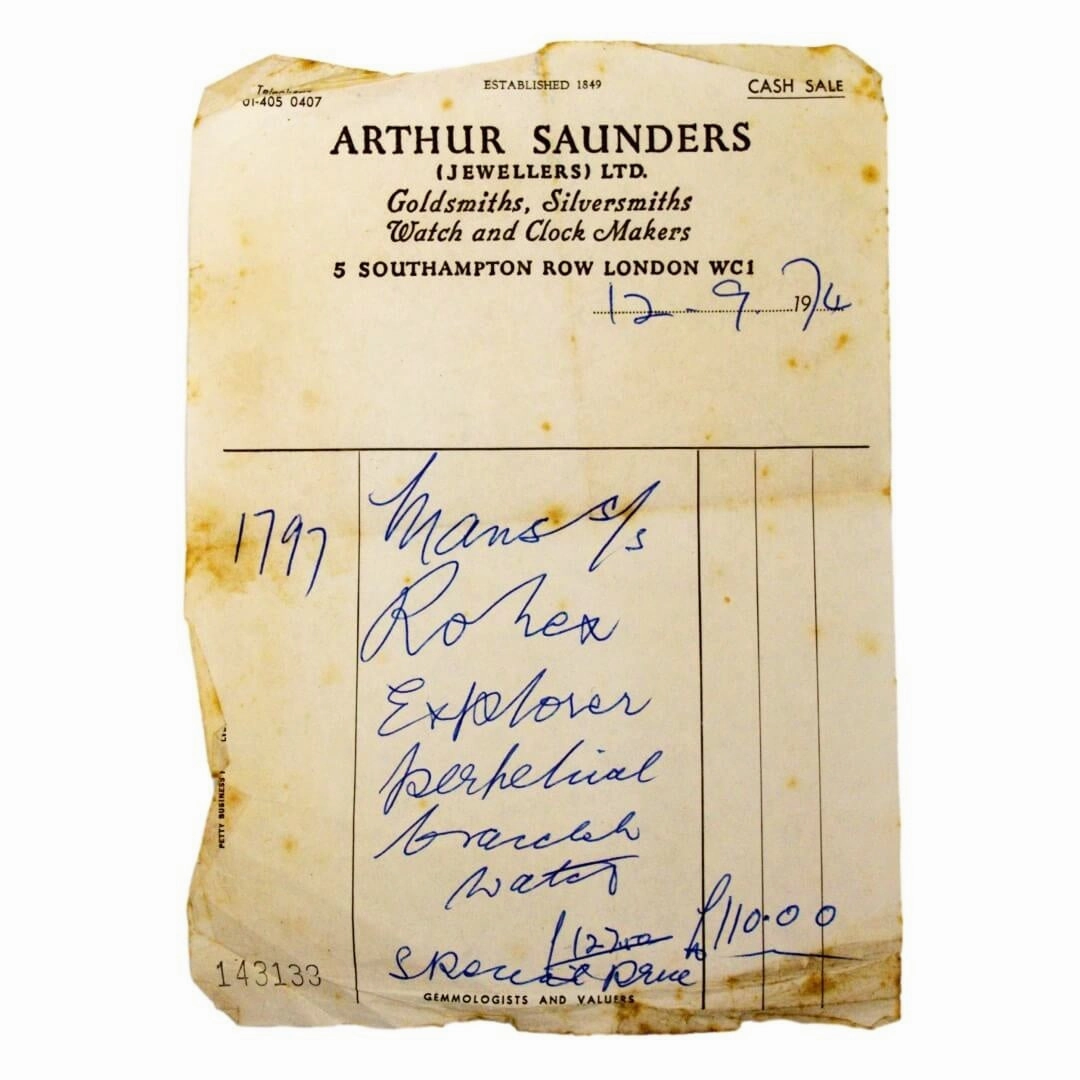 Telephone
01-405 0407
ESTABLISHED 1849
CASH SALE
ARTHUR SAUNDERS
(JEWELLERS) LTD.
Goldsmiths, Silversmiths
Watch and Clock Makers
5 SOUTHAMPTON ROW LONDON WC1
12 - 9. 1974
1797
Mans s/s
Rolex
Explorer
perpetual
bracelet
watch
£110.00
Special price
PETTY BUSINESS
143133
GEMMOLOGISTS AND VALUERS